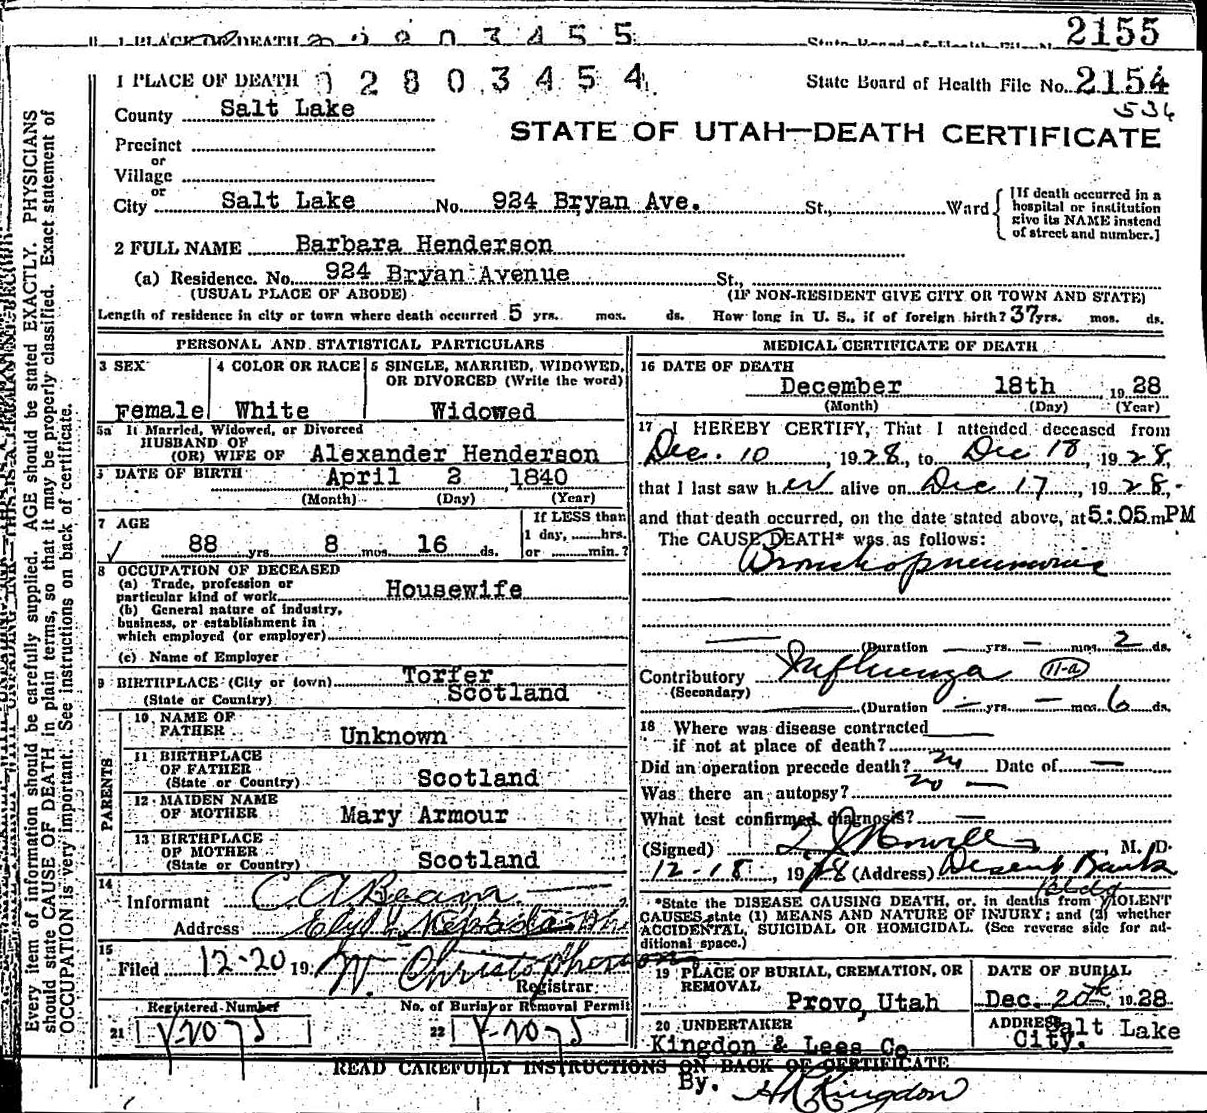 1 PLACE OF DEATH 02803455 State Board of Health File No. 2155
1 PLACE OF DEATH 02803454 State Board of Health File No. 2154
536
County Salt Lake
STATE OF UTAH—DEATH CERTIFICATE
Precinct
or
Village
or
City Salt Lake No. 924 Bryan Ave. St., Ward
[If death occurred in a
hospital or institution
give its NAME instead
of street and number.]
2 FULL NAME Barbara Henderson
(a) Residence. No. 924 Bryan Avenue St.,
(USUAL PLACE OF ABODE) (IF NON-RESIDENT GIVE CITY OR TOWN AND STATE)
Length of residence in city or town where death occurred 5 yrs. mos. ds. How long in U. S., if of foreign birth? 37 yrs. mos. ds.
PERSONAL AND STATISTICAL PARTICULARS
3 SEX 4 COLOR OR RACE 5 SINGLE, MARRIED, WIDOWED,
OR DIVORCED (Write the word)
Female White Widowed
5a If Married, Widowed, or Divorced
HUSBAND OF
(OR) WIFE OF Alexander Henderson
DATE OF BIRTH April 2 1840
(Month) (Day) (Year)
7 AGE If LESS than
1 day, hrs.
88 yrs 8 mos 16 ds. or min.?
8 OCCUPATION OF DECEASED
(a) Trade, profession or
particular kind of work Housewife
(b) General nature of industry,
business, or establishment in
which employed (or employer)
(c) Name of Employer
9 BIRTHPLACE (City or town) Torfer
(State or Country) Scotland
PARENTS
10 NAME OF
FATHER Unknown
11 BIRTHPLACE
OF FATHER
(State or Country) Scotland
12 MAIDEN NAME
OF MOTHER Mary Armour
13 BIRTHPLACE
OF MOTHER
(State or Country) Scotland
14
Informant C A Beam
Address Ely Nevada
15
Filed 12-20 19 W. Christopherson
Registrar
Registered Number No. of Burial or Removal Permit
21 Y-2075 22 Y-2075
MEDICAL CERTIFICATE OF DEATH
16 DATE OF DEATH
December 18th, 1928
(Month) (Day) (Year)
17 I HEREBY CERTIFY, That I attended deceased from
Dec. 10, 1928, to Dec 18, 1928,
that I last saw her alive on Dec 17, 1928.
and that death occurred, on the date stated above, at 5:05 m PM
The CAUSE DEATH* was as follows:
Bronchopneumonia
(Duration yrs — mos. 2 ds.
Contributory Influenza 11-a
(Secondary)
(Duration — yrs — mos 6 ds.
18 Where was disease contracted
if not at place of death?
Did an operation precede death? no Date of —
Was there an autopsy? no —
What test confirmed diagnosis? —
(Signed) M. D.
12-18, 1928 (Address) Deseret Bank
Bldg
*State the DISEASE CAUSING DEATH, or, in deaths from VIOLENT
CAUSES, state (1) MEANS AND NATURE OF INJURY; and (2) whether
ACCIDENTAL, SUICIDAL OR HOMICIDAL. (See reverse side for ad-
ditional space.)
19 PLACE OF BURIAL, CREMATION, OR
REMOVAL
Provo, Utah
DATE OF BURIAL
Dec. 20th 1928
20 UNDERTAKER
Kingdon & Lees Co
ADDRESS Salt Lake
City.
READ CAREFULLY INSTRUCTIONS ON BACK OF CERTIFICATE
By. Kingdon
Every item of information should be carefully supplied. AGE should be stated EXACTLY. PHYSICIANS
should state CAUSE OF DEATH in plain terms, so that it may be properly classified. Exact statement of
OCCUPATION is very important. See instructions on back of certificate.